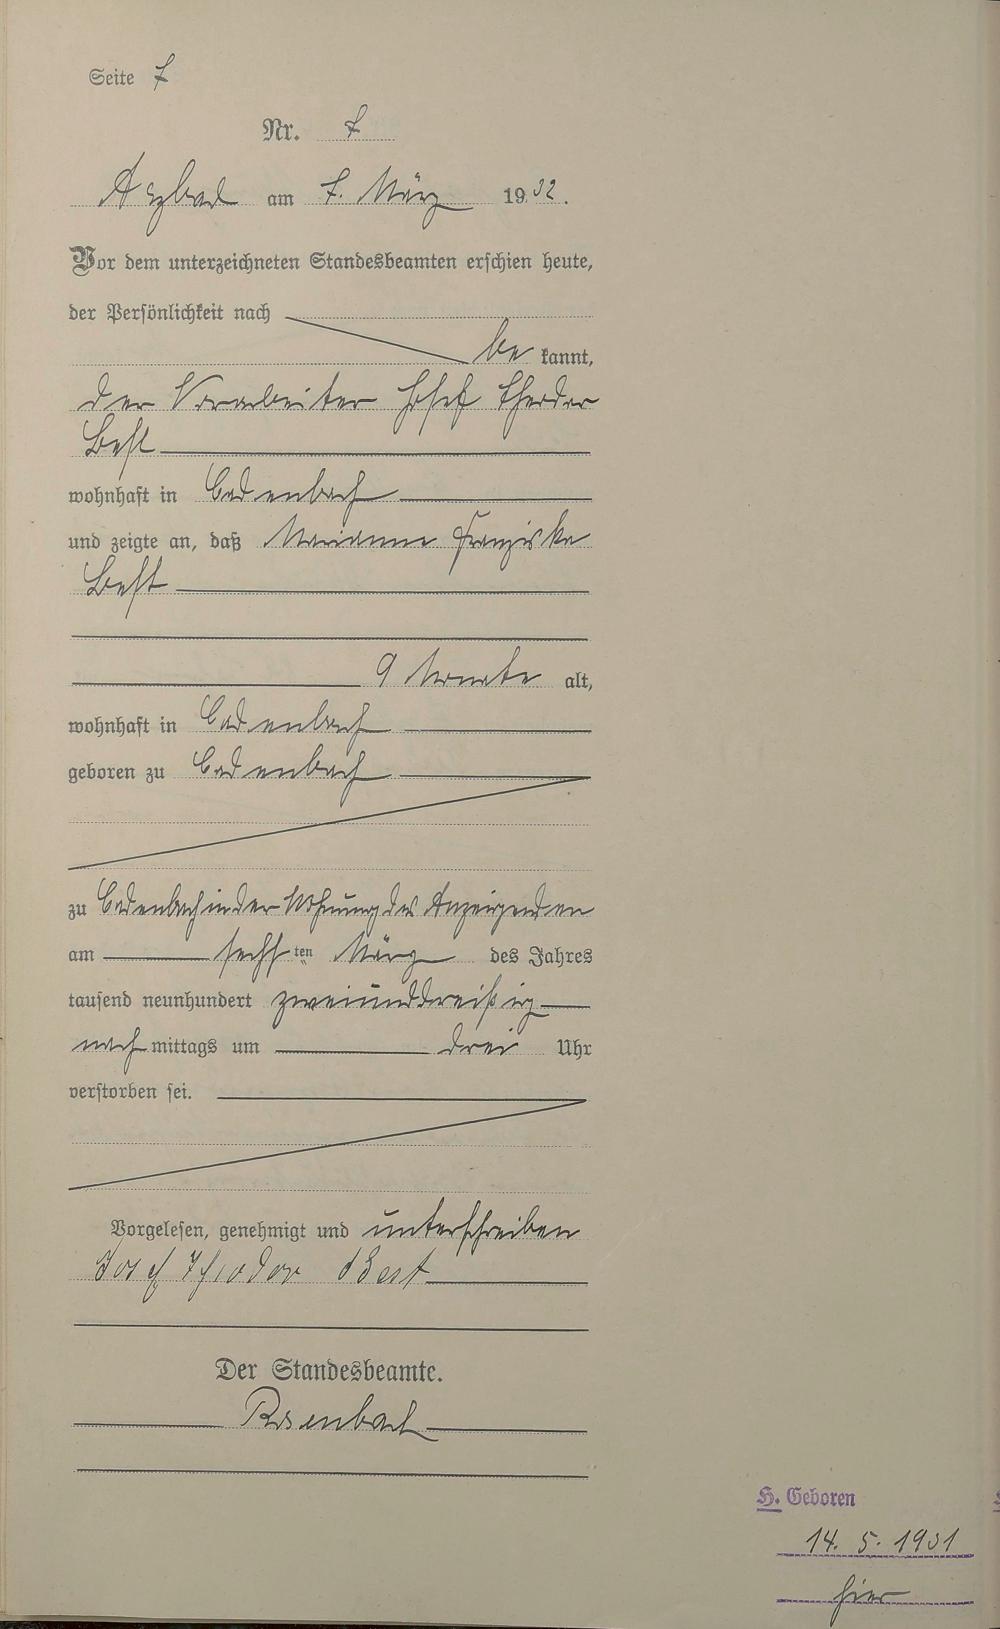 Seite 7
Nr. 7
Arzbach am 7. März 1932.
Vor dem unterzeichneten Standesbeamten erschien heute,
der Persönlichkeit nach
be kannt,
der Vorarbeiter Josef Theodor
Best
wohnhaft in Cadenbach
und zeigte an, daß Marianne Franziska
Best
9 Monate alt,
wohnhaft in Cadenbach
geboren zu Cadenbach
zu Cadenbach in der Wohnung des Anzeigenden
am sechsten März des Jahres
tausend neunhundert zweiunddreißig
nachmittags um drei Uhr
verstorben sei.
Vorgelesen, genehmigt und unterschrieben
Josef Theodor Best
Der Standesbeamte.
H. Geboren
14. 5. 1931
hier